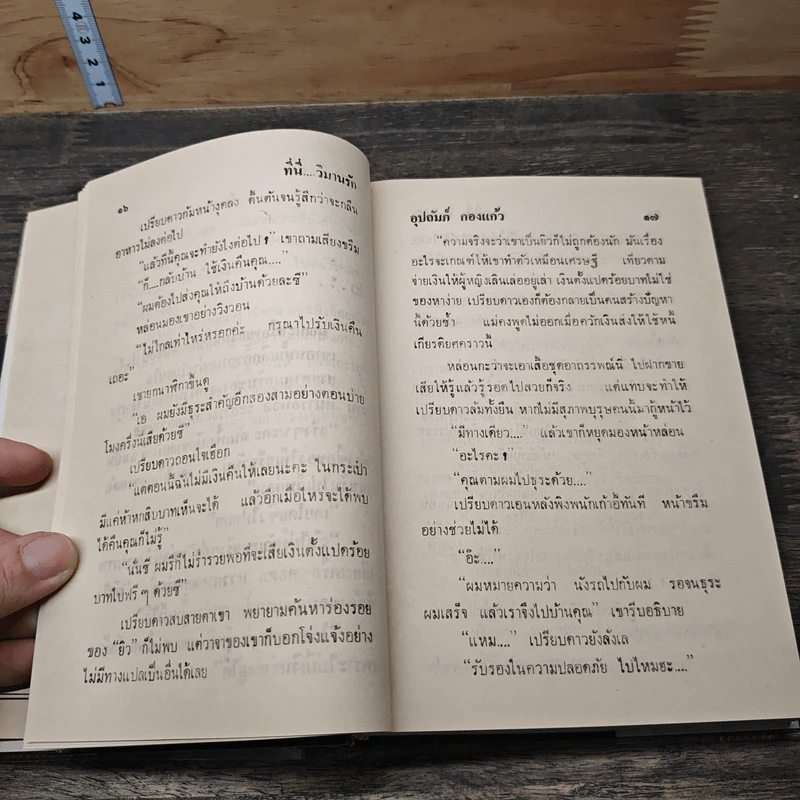 4 3 2 1
๑๖
ที่นี่....วิมานรัก
เปรียบดาวก้มหน้างุดลง ตื้นตันจนรู้สึกว่าจะกลืน
อาหารไม่ลงต่อไป
“แล้วทีนี้คุณจะทำยังไงต่อไป?” เขาถามเสียงขรึม
“ก็....กลับบ้าน ใช้เงินคืนคุณ....”
“ผมต้องไปส่งคุณให้ถึงบ้านด้วยละซี”
หล่อนมองเขาอย่างวิงวอน
“ไม่ไกลเท่าไหร่หรอกค่ะ กรุณาไปรับเงินคืน
เถอะ”
เขายกนาฬิกาขึ้นดู
“เอ ผมยังมีธุระสำคัญอีกสองสามอย่างตอนบ่าย
โมงครึ่งนี่เสียด้วยซี”
เปรียบดาวถอนใจเฮือก
“แต่ตอนนี้ฉันไม่มีเงินคืนให้เลยนะคะ ในกระเป๋า
มีแค่ห้าหกสิบบาทเห็นจะได้ แล้วอีกเมื่อไหร่จะได้พบ
ได้คืนคุณก็ไม่รู้”
“นั่นซี ผมรึก็ไม่ร่ำรวยพอที่จะเสียเงินตั้งแปดร้อย
บาทไปฟรี ๆ ด้วยซี”
เปรียบดาวสบสายตาเขา พยายามค้นหาร่องรอย
ของ “ยิว” ก็ไม่พบ แต่วาจาของเขาก็บอกโจ่งแจ้งอย่าง
ไม่มีทางแปลเป็นอื่นได้เลย
อุปถัมภ์ กองแก้ว
๑๗
“ความจริงจะว่าเขาเป็นยิวก็ไม่ถูกต้องนัก มันเรื่อง
อะไรจะเกณฑ์ให้เขาทำตัวเหมือนเศรษฐี เที่ยวตาม
จ่ายเงินให้ผู้หญิงเลินเล่ออยู่เล่า เงินตั้งแปดร้อยบาทไม่ใช่
ของหาง่าย เปรียบดาวเองก็ต้องกลายเป็นคนสร้างปัญหา
นี้ด้วยซ้ำ แม่คงพูดไม่ออกเมื่อควักเงินส่งให้ใช้หนี้
เกียรติยศคราวนี้
หล่อนกะว่าจะเอาเสื้อชุดอาถรรพณ์นี่ ไปฝากขาย
เสียให้รู้แล้วรู้รอดไปสวยก็จริง แต่แทบจะทำให้
เปรียบดาวล้มทั้งยืน หากไม่มีสุภาพบุรุษคนนี้มากู้หน้าไว้
“มีทางเดียว....” แล้วเขาก็หยุดมองหน้าหล่อน
“อะไรคะ?”
“คุณตามผมไปธุระด้วย....”
เปรียบดาวเอนหลังพิงพนักเก้าอี้ทันที หน้าขรึม
อย่างช่วยไม่ได้
“อ๊ะ....”
“ผมหมายความว่า นั่งรถไปกับผม รอจนธุระ
ผมเสร็จ แล้วเราจึงไปบ้านคุณ” เขารีบอธิบาย
“แหม....” เปรียบดาวยังลังเล
“รับรองในความปลอดภัย ไปไหมฮะ....”